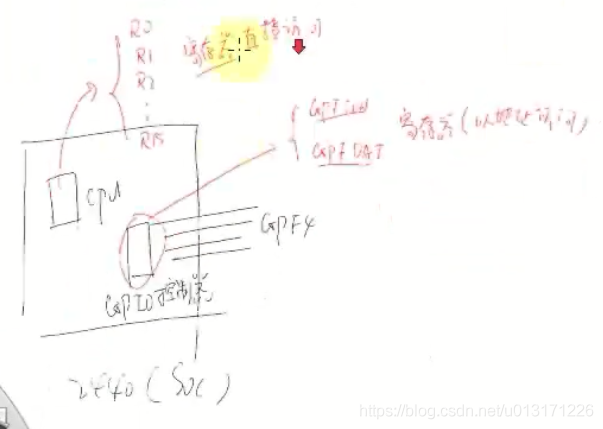 R0
R1
R2
R15
寄存器 直接访问
GPFCON
GPFDAT
寄存器(以地址访问)
CPU
GPF4
GPIO控制器
2440(SOC)
https://blog.csdn.net/u013171226